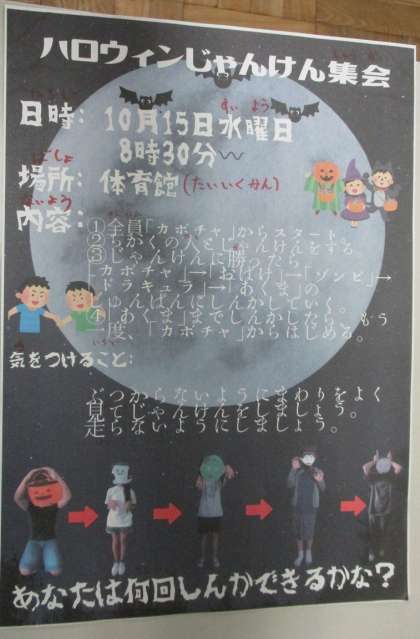 ハロウィンじゃんけん集会
日時: 10月15日水曜日
8時30分〜
場所: 体育館(たいいくかん)
内容:
①全員「カボチャ」からスタート。
②ちかくの人とじゃんけんをする。
③じゃんけんに勝ったら、
「カボチャ」→「おばけ」→「ゾンビ」→
「ドラキュラ」→「あくま」の
じゅんばんにしんかしていく。
④「あくま」までしんかしたら、もう
一度、「カボチャ」からはじめる。
気をつけること:
ぶつからないようにまわりをよく
見てじゃんけんをしましょう。
走らないようにしましょう。
あなたは何回しんかできるかな?